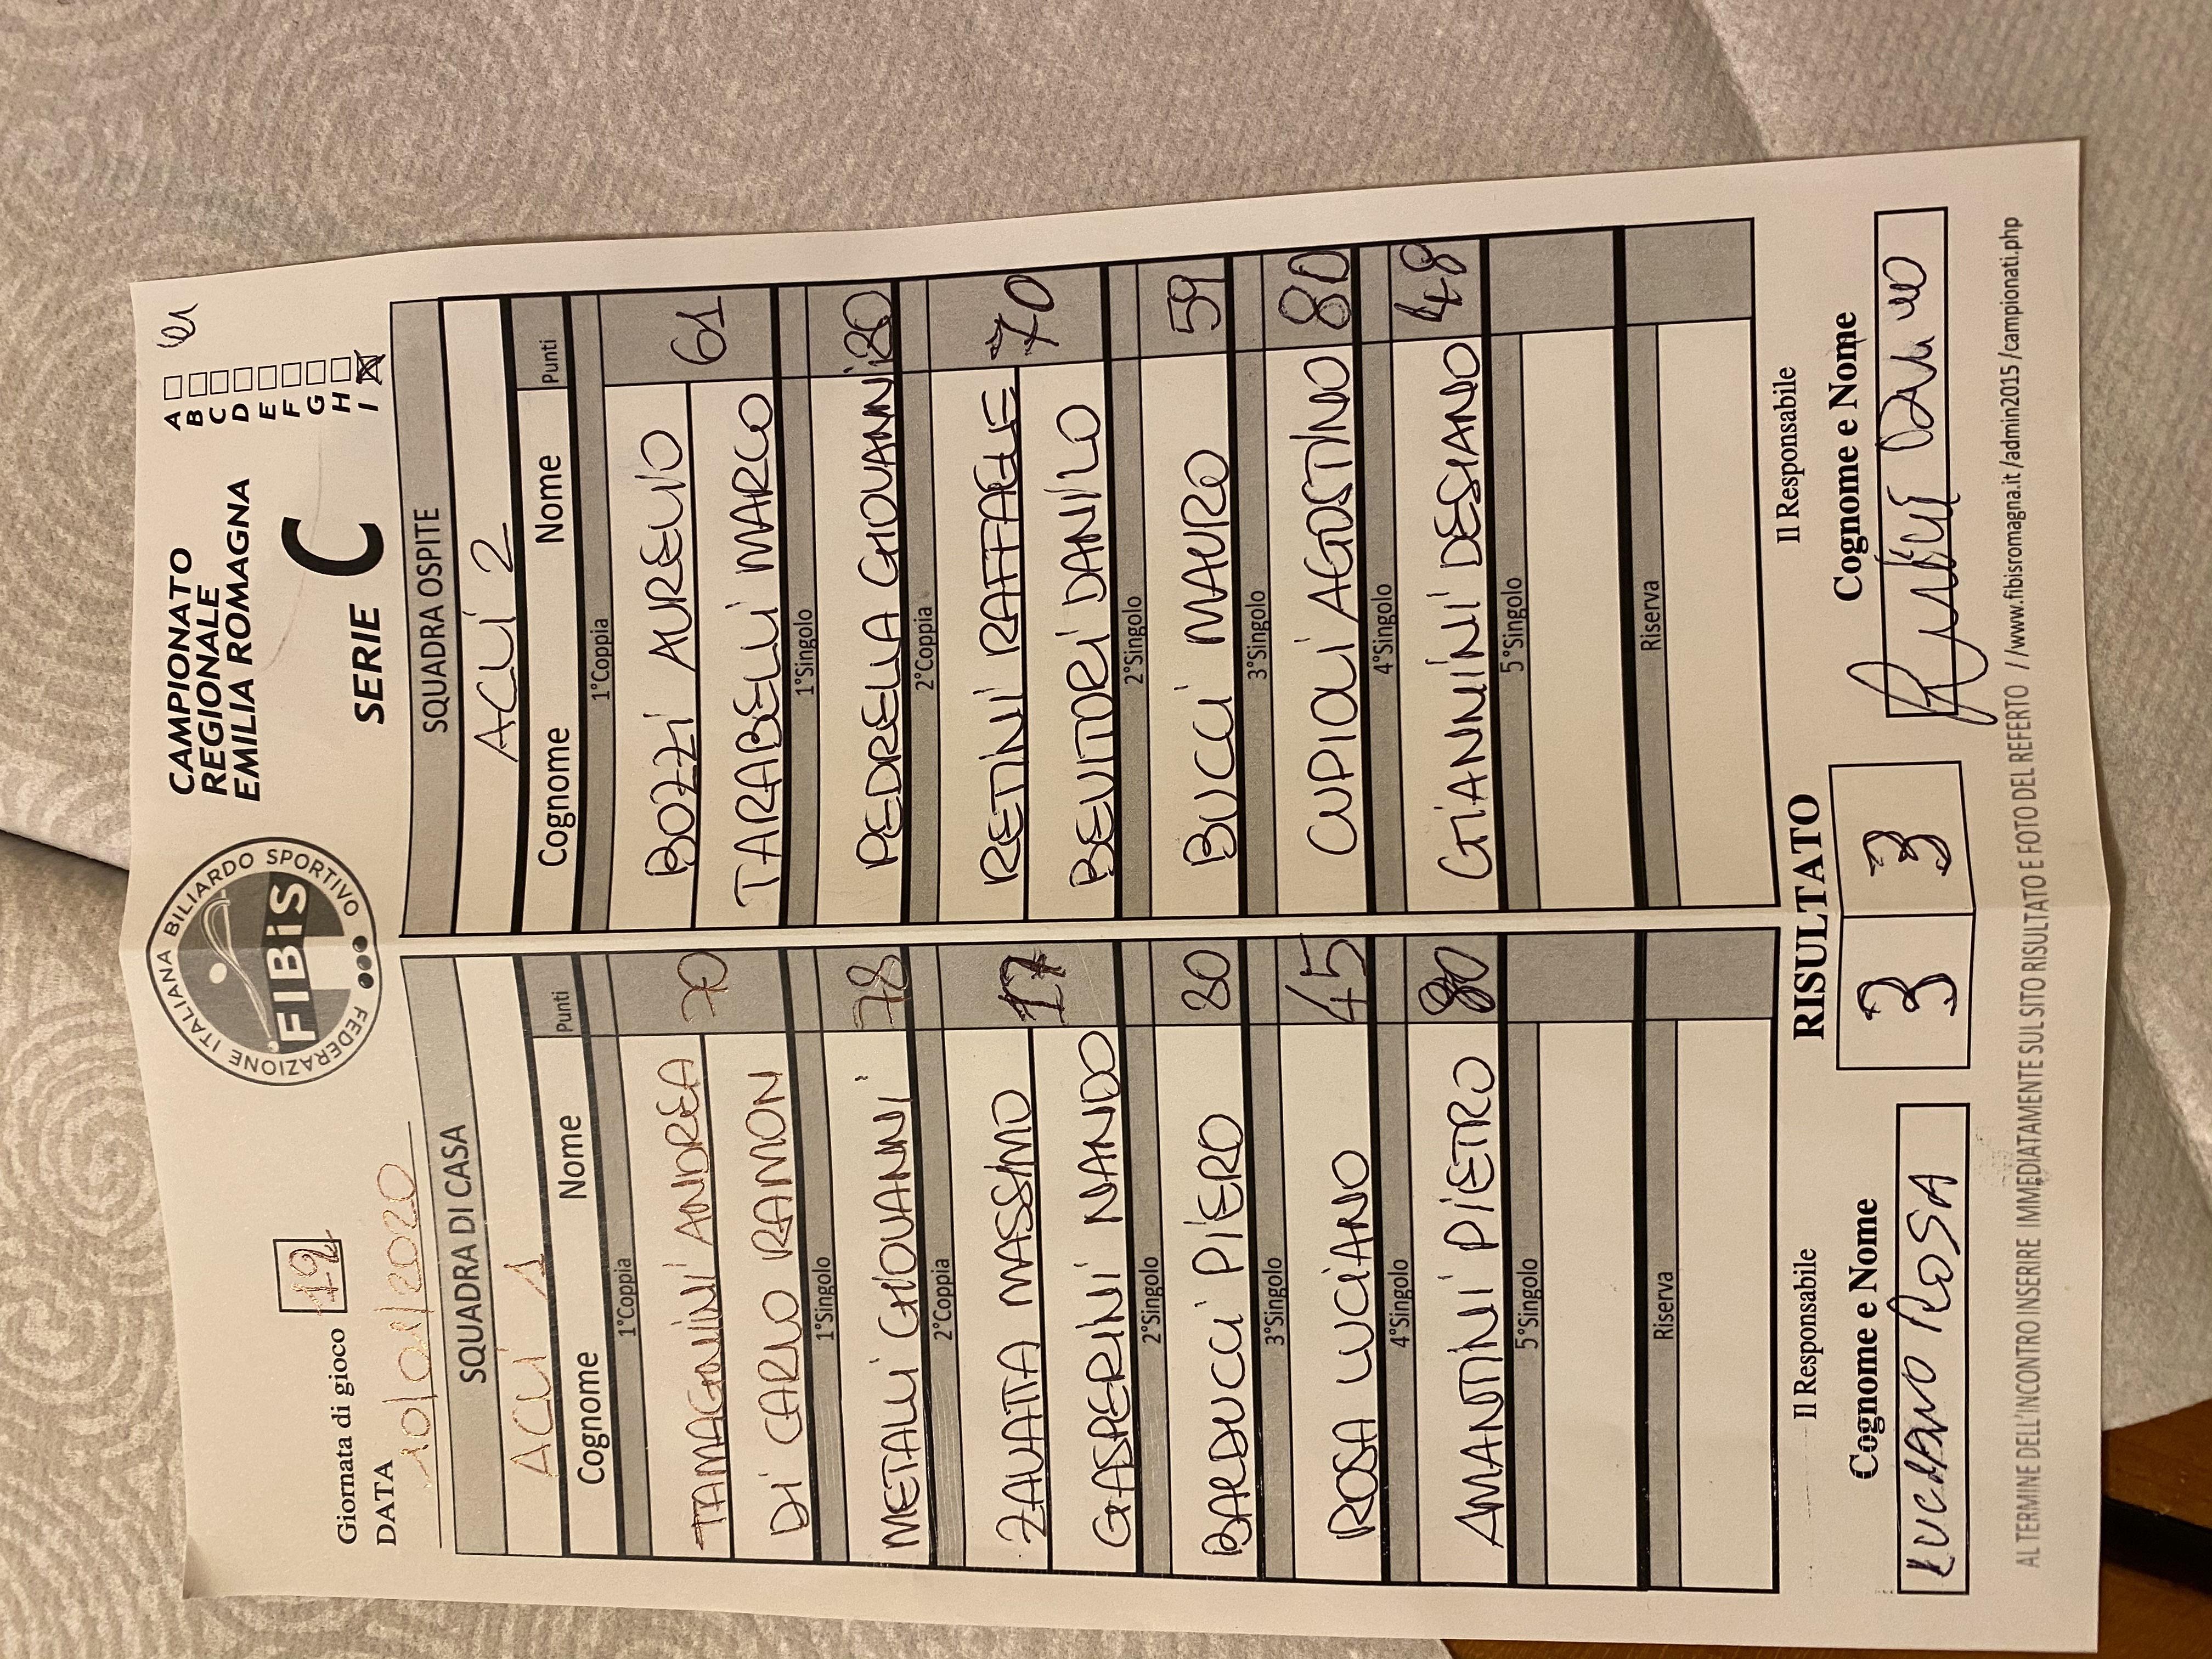 Giornata di gioco 12
DATA 10/01/2020
FEDERAZIONE ITALIANA BILIARDO SPORTIVO
FIBiS
CAMPIONATO
REGIONALE
EMILIA ROMAGNA
SERIE C
A
B
C
D
E
F
G
H
I
SQUADRA DI CASA SQUADRA OSPITE
ACLI 1 ACLI 2
Cognome Nome Punti Cognome Nome Punti
1°Coppia 1°Coppia
TAMAGNINI ANDREA 70 BOZZI AURELIO 61
DI CARLO RAMON TARABELLI MARCO
1°Singolo 1°Singolo
METALLI GIOVANNI 78 PEDRELLA GIOVANNI 80
2°Coppia 2°Coppia
ZAVATTA MASSIMO 17 RETINI RAFFAELE 70
GASPERINI NANDO DANILO
2°Singolo 2°Singolo
BARDUCCI PIERO 80 BUCCI MAURO 59
3°Singolo 3°Singolo
ROSA LUCIANO 45 CUPIOLI AGOSTINO 80
4°Singolo 4°Singolo
AMANTINI PIETRO 80 GIANNINI DESIANO 48
5°Singolo 5°Singolo
Riserva Riserva
Il Responsabile RISULTATO Il Responsabile
Cognome e Nome 3 3 Cognome e Nome
LUCIANO ROSA
AL TERMINE DELL'INCONTRO INSERIRE IMMEDIATAMENTE SUL SITO RISULTATO E FOTO DEL REFERTO //www.fibisromagna.it/admin2015/campionati.php